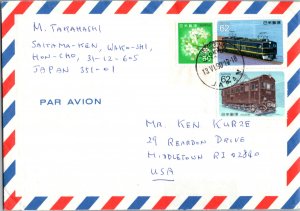 M. TAKAHASHI
SAITAMA-KEN, WAKO-SHI,
HON-CHO, 31-12-6-5
JAPAN 351-01
PAR AVION
日本郵便
62
日本郵便
62
日本郵便
MR. KEN KURZE
29 REARDON DRIVE
MIDDLETOWN RI 02840
USA